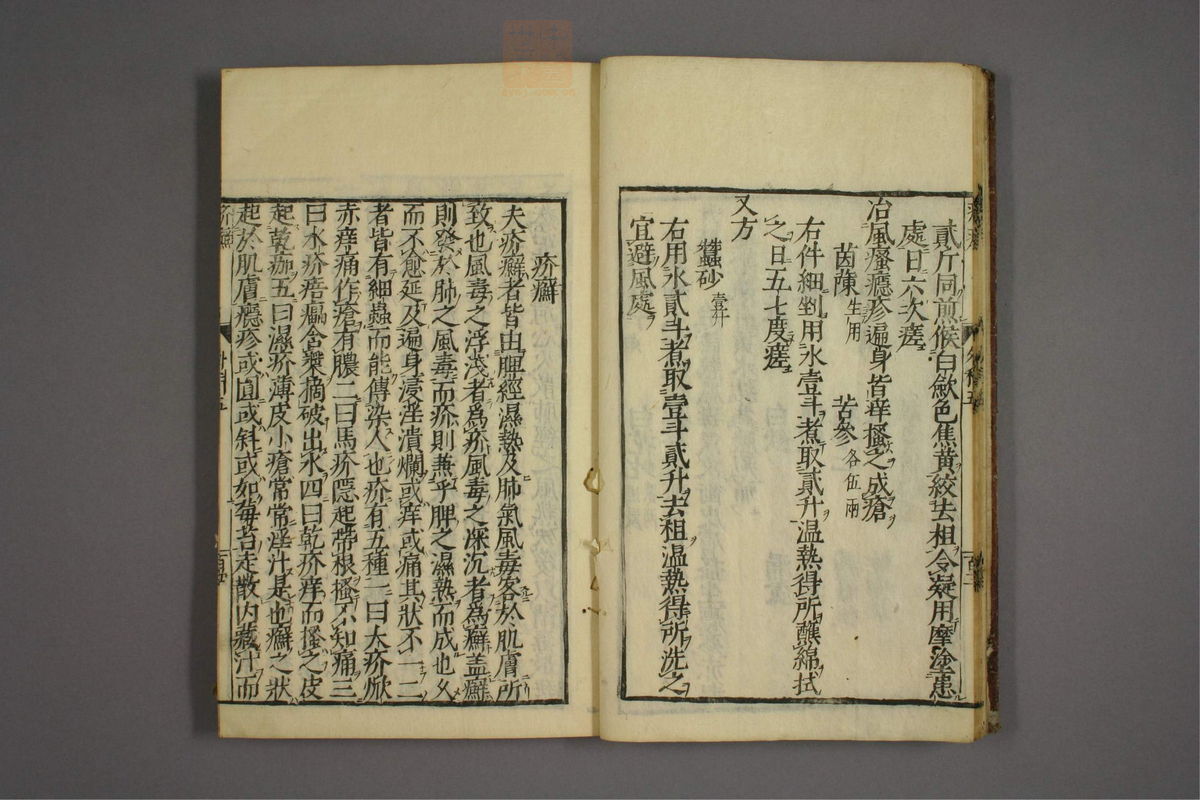 貳斤同煎候白歛色焦黃絞去柤令凝用摩塗患
處日六次瘥
治風瘙癮疹遍身皆痒搔之成瘡
茵蔯生用 苦參各伍兩
右件細剉用水壹斗煮取貳升温熱得所蘸綿拭
之日五七度瘥
又方
蠶砂壹升
右用水貳斗煮取壹斗貳升去柤温熱得所洗之
宜避風處
疥癬
夫疥癬者皆由脾經濕熱及肺氣風毒客於肌膚所
致也風毒之浮淺者爲疥風毒之深沉者爲癬盖癬
則發於肺之風毒而疥則兼乎脾之濕熱而成也久
而不愈延及遍身浸淫潰爛或痒或痛其狀不一二
者皆有細蟲而能傳染人也疥有五種一曰大疥焮
赤痒痛作瘡有膿二曰馬疥隱起帶根搔不知痛三
曰水疥㾦㿔含漿摘破出水四曰乾疥痒而搔之皮
起乾痂五曰濕疥薄皮小瘡常常淫汁是也癬之狀
起於肌膚癮疹或圓或斜或如莓苔走散內藏汁而